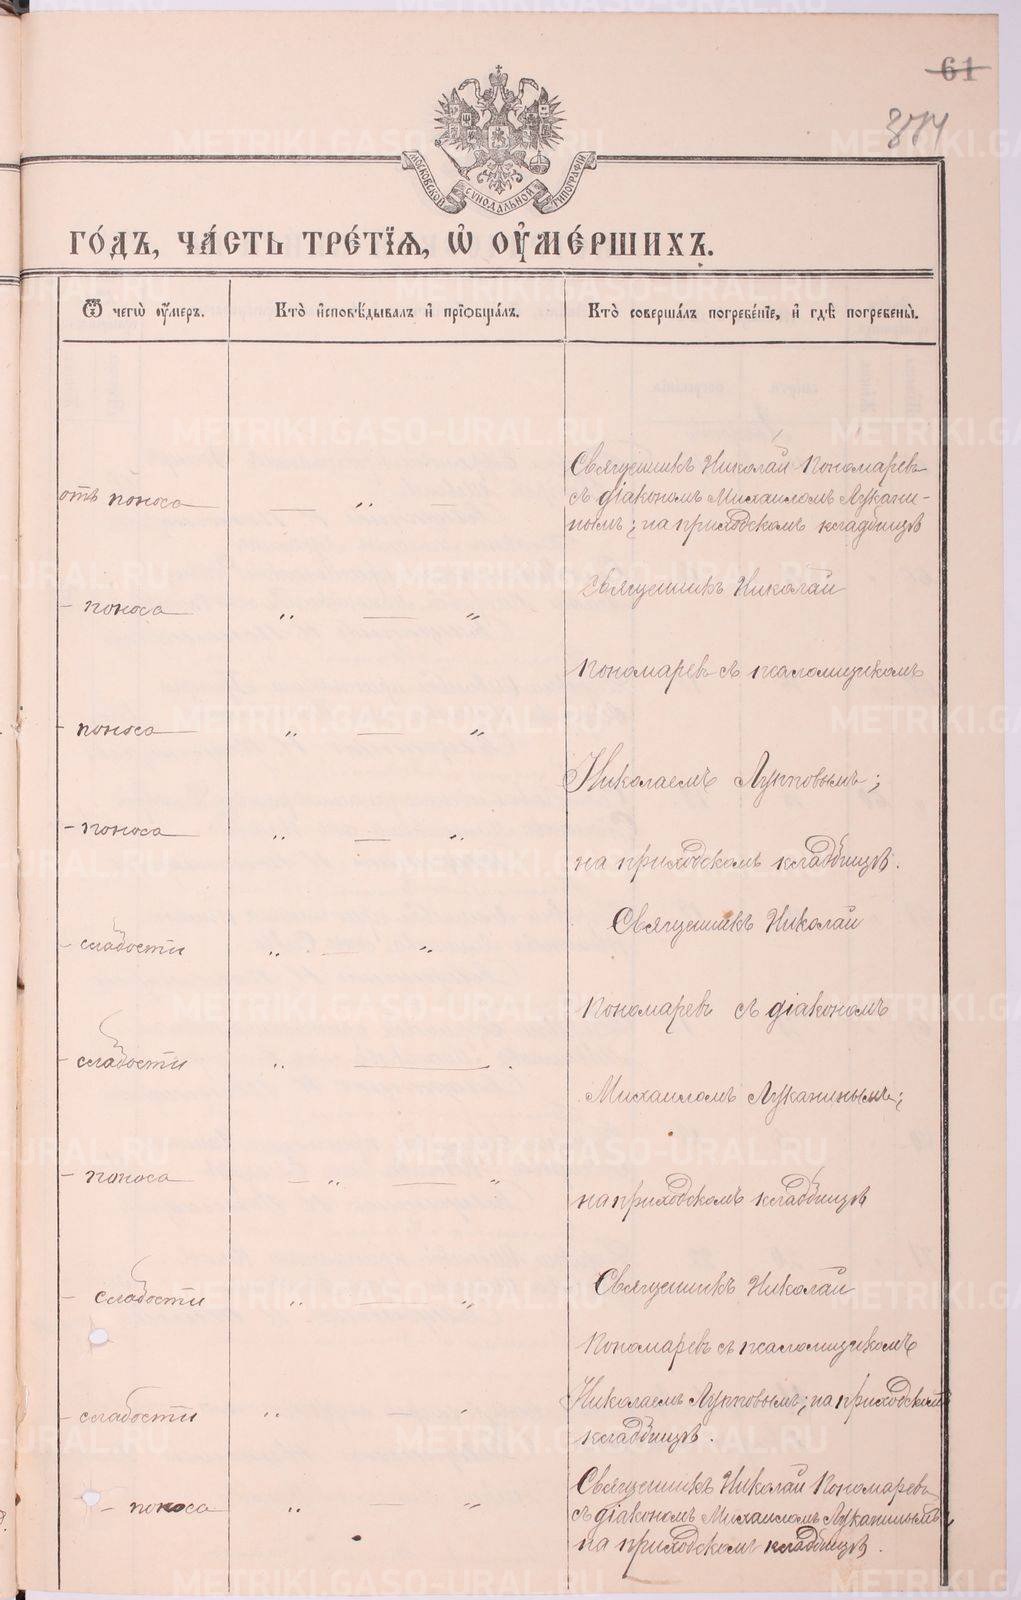 61
МОСКОВСКОЙ СѴНОДАЛЬНОЙ ТИПОГРАФІИ
ГО́ДЪ, ЧА́СТЬ ТРЕ́ТІѦ, Ѡ҆ ОУ҆МЕ́РШИХЪ.
Ѿ чегѡ̀ оу҆́меръ.
Кто̀ и҆сповѣ́дывалъ и҆ прїѡбща́лъ.
Кто̀ соверша́лъ погребе́нїе, и҆ гдѣ̀ погребены̀.
отъ поноса — „
Священникъ Николай Пономаревъ
съ діакономъ Михаиломъ Лукани-
нымъ; на приходскомъ кладбищѣ
- поноса „ — „
Священникъ Николай
Пономаревъ съ псаломщикомъ
- поноса „ — „
Николаемъ Луппов​ымъ;
- поноса „ — „
на приходскомъ кладбищѣ.
Священникъ Николай
- слабости „ — „
Пономаревъ съ діакономъ
- слабости „ —
Михаиломъ Луканинымъ;
- поноса — „ — „
на приходскомъ кладбищѣ
- слабости „ — „
Священникъ Николай
Пономаревъ съ псаломщикомъ
Николаемъ Лупповымъ; на приходскомъ
- слабости „ — „
кладбищѣ.
Священникъ Николай Пономаревъ
- поноса „ — „
съ діакономъ Михаиломъ Луканинымъ
на приходскомъ кладбищѣ.
METRIKI.GASO-URAL.RU